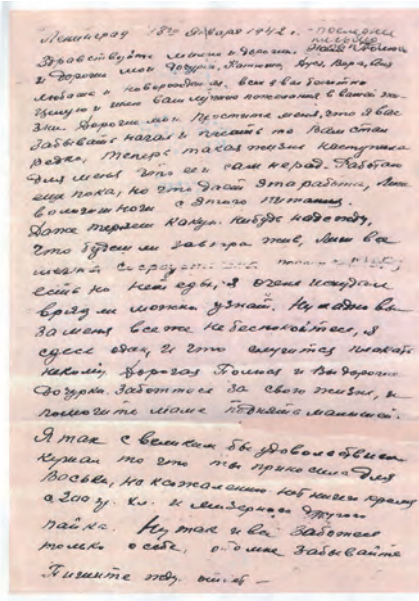 Ленинград 18го Января 1942 г. - последнее
письмо
Здравствуйте милые и дорогие.
и дорогие мои дочурки, Катюша, Вера,
Любаша и новорожденная, всех я вас
целую и шлю вам лучшие пожелания в вашей
зни. Дорогие мои простите меня, что я вас
забывать начал и писать то Вам стал
редко, теперь такая жизнь наступила
для меня что ей сам не рад. Работаю
еще пока, но что дает эта работа, лиш
волочит ноги с этого питания.
Даже теряем какую нибудь надежду,
что будем ли завтра жив,
есть но нет еды, я очень исхудал
вряд ли можно узнать. Ну ладно вы
за меня все же не беспокойтесь, я
сдесь один, и что случится плакать
некому. Дорогая и Вы дорогие
дочурки. Заботтеся за свою жизнь, и
помогите маме поднять малышей.
Я так с великим бы удоволствием
кушал то что ты приносила для
Васьки, но к сожалению нет ничего кроме
с 200 г. хл. и мизерного другого
пайка. Ну так и вы заботтеся
только о себе, о мне забывайте
Пишите жду ответ —